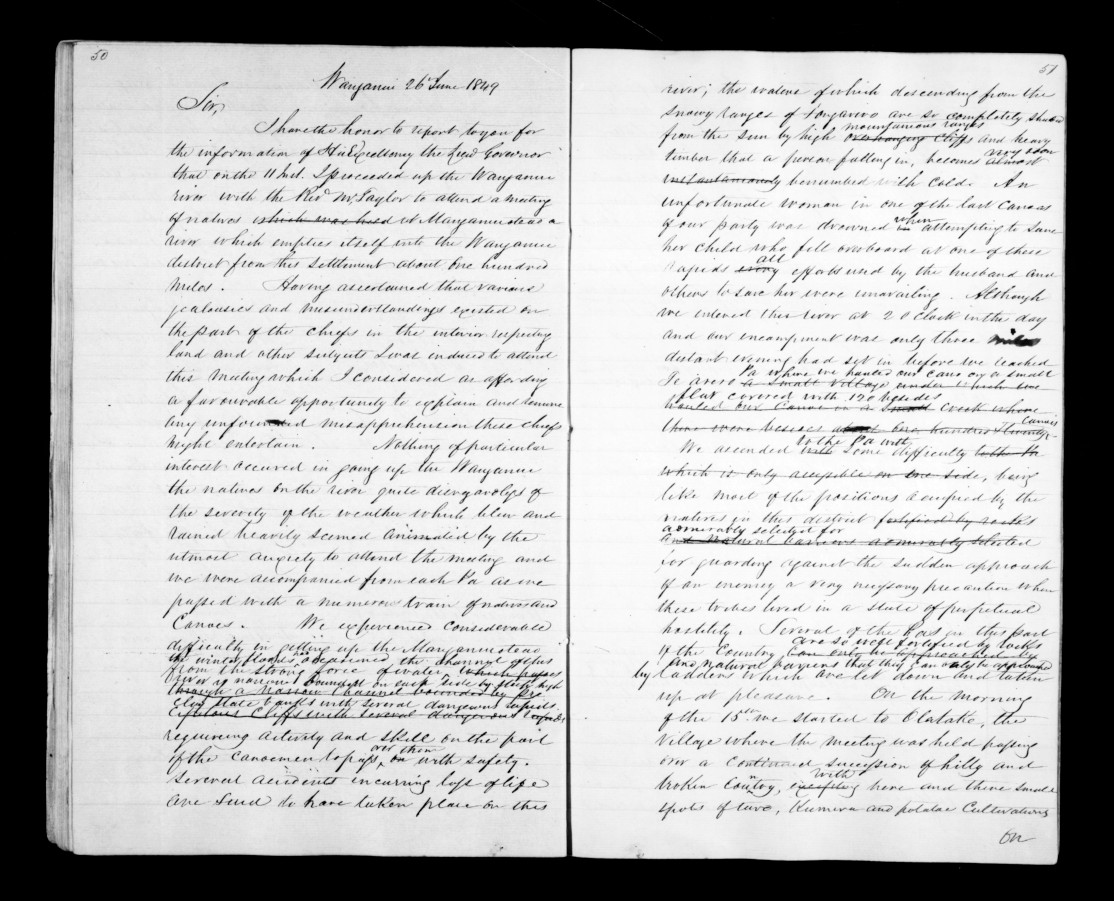 50
Wanganui 26 June 1849
Sir,
I have the honor to report to you for
the information of His Excellency the Lieut Governor
that on the 11 Inst. I proceeded up the Wanganui
river with the Revd Mr Taylor to attend a meeting
of natives which was held at Manganuioteao a
river which empties itself into the Wanganui
district from this Settlement about One hundred
miles. Having ascertained that various
jealousies and misunderstandings existed on
the part of the chiefs in the interior respecting
land and other subjects I was induced to attend
this meeting which I considered as affording
a favourable opportunity to explain and remove
any unfounded misapprehension these chiefs
might entertain. Nothing of particular
interest occured in going up the Wanganui
the natives on the river quite disregardless of
the severity of the weather which blew and
rained heavily seemed animated by the
utmost anxiety to attend the meeting and
we were accompanied from each Pa as we
passed with a numerous train of natives and
Canoes. We experienced considerable
difficulty in getting up the Manganuioteao
the winter floods occasioned the channel of this
from the strong force of water which passes
river is narrow bounded on each side by steep high
through a narrow channel bounded by pre
clay slate banks with several dangerous rapids
cipitous Cliffs with several dangerous rapids
requiring activity and skill on the part
of the canoemen to pass over them with safety.
Several accidents incurring loss of life
are said to have taken place on this
51
river; the waters of which descending from the
snowy ranges of Tongariro are so completely shaded
mountainous ranges
from the sun by high overhanging cliffs and heavy
very soon
timber that a person falling in, becomes almost
instantaneously benumbed with cold. An
unfortunate woman in one of the last Canoes
when
of our party was drowned in attempting to save
her child who fell overboard at one of these
all
rapids every efforts used by the husband and
others to save her were unavailing. Although
we entered this river at 2 o Clock in the day
and our encampment was only three miles
distant evening had set in before we reached
Pa where we hauled our canoe up a small
Te arero a small village under which we
flat covered with 120 besides
hauled our Canoe on a small creek where
Canoes
there were besides about one hundred & twenty
to the Pa with
We ascended with some difficulty to the Pa
which is only accessible on one side, being
like most of the positions occupied by the
natives in this district fortified by rocks
admirably selected for
and natural barriers admirably selected
for guarding against the sudden approach
of an enemy a very necessary precaution when
these tribes lived in a state of perpetual
hostility. Several of the Pas in this part
are so well fortified by rocks
of the Country can only be approached
and natural barriers that they can only be approached
by ladders which are let down and taken
up at pleasure. On the morning
of the 15th we started to Otatake, the
village where the meeting was held passing
over a continued succession of hilly and
with
broken Country, here and there small
spots of taro, Kumera and potatoe Cultivations
On